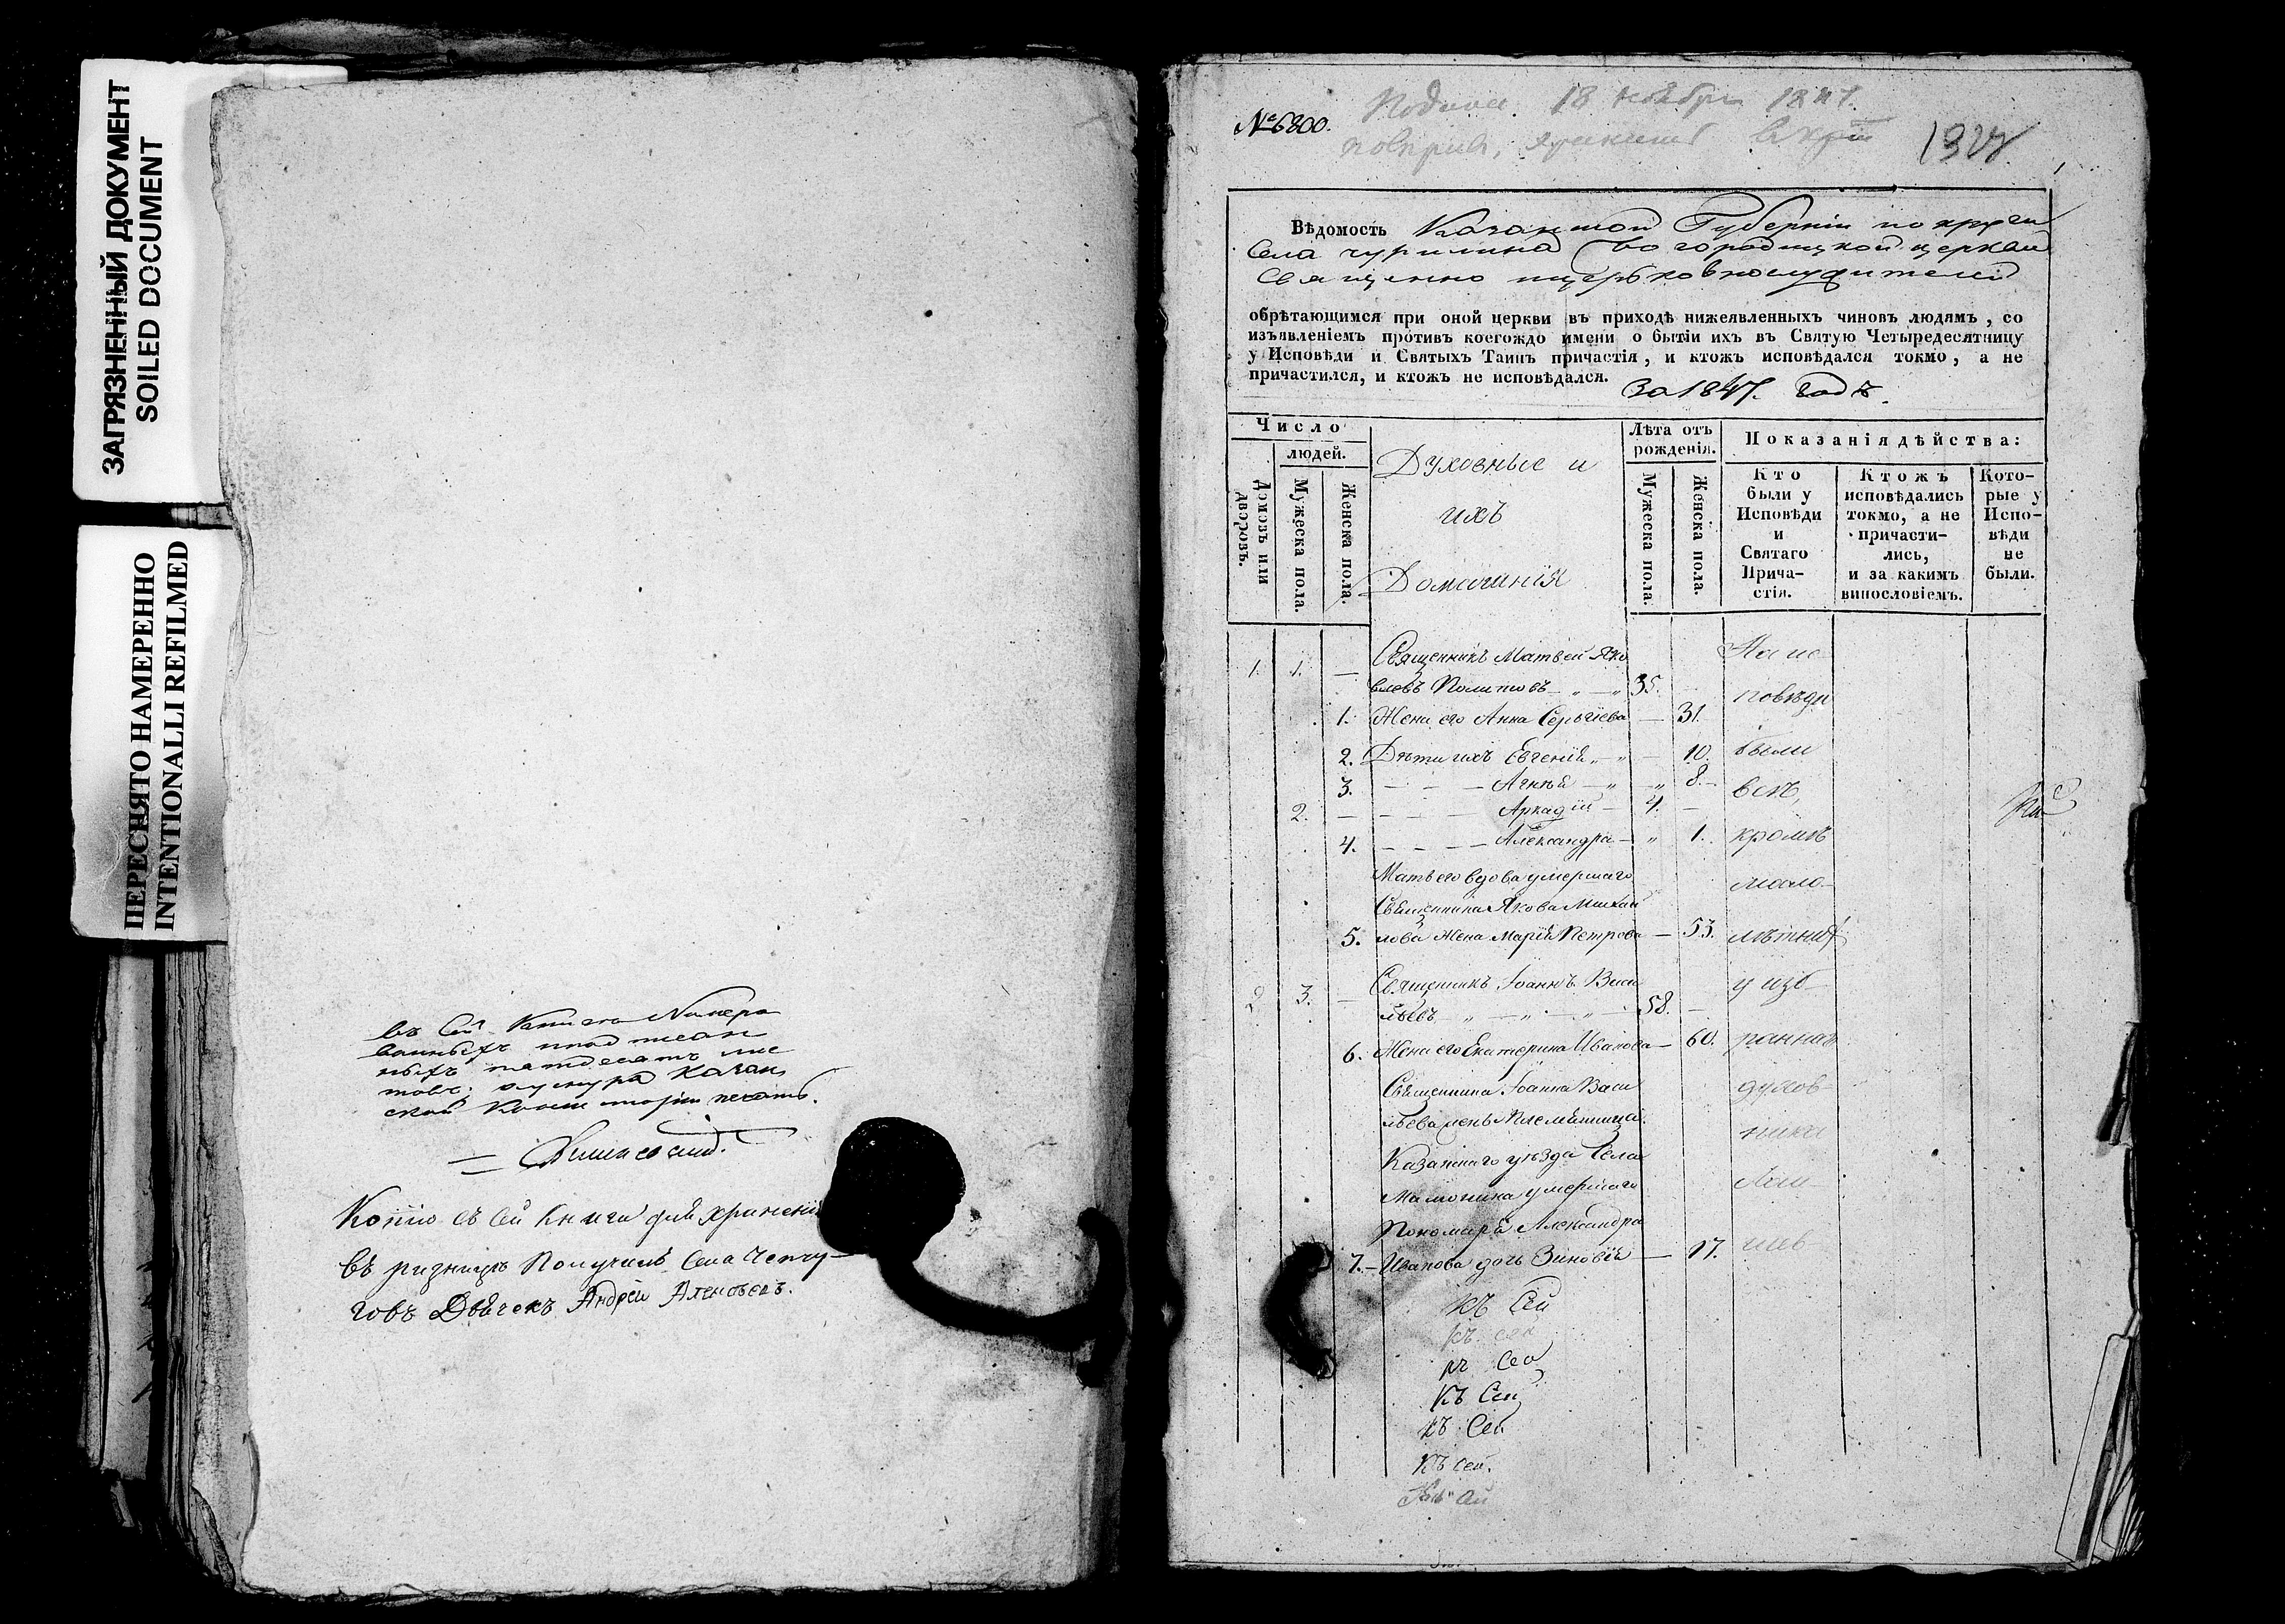 ЗАГРЯЗНЕННЫЙ ДОКУМЕНТ
SOILED DOCUMENT
ПЕРЕСНЯТО НАМЕРЕННО
INTENTIONALLI REFILMED
въ сей книге Номеро
ванныхъ
ныхъ пятдесятъ лис
товъ. Казан
ской печать.
Копiю съ сей книги для хранения
въ ризницу Получилъ Села Чепчу-
говъ Дьячекъ Андрей
№ 6800.
Подана 18 ноября 1847.
Вѣдомость Казанской Губернiи по округи
села чурилина Богородицкой церкви
Священно ицерковнослужителей
обрѣтающимся при оной церкви въ приходѣ нижеявленныхъ чиновъ людямъ, со
изъявленiемъ противъ коегождо имени о бытiи ихъ въ Святую Четыредесятницу
у Исповѣди и Святыхъ Таинъ причастiя, и ктожъ исповѣдался токмо, а не
причастился, и ктожъ не исповѣдался.
За 1847. годъ.
Число
людей.
Домовъ или дворовъ.
Мужеска пола.
Женска пола.
Духовные и
ихъ
Домашнiя
Лѣта отъ
рожденiя.
Мужеска пола.
Женска пола.
Показанiя дѣйства:
Кто
были у
Исповѣди
и
Святаго
Прича-
стiя.
Ктожъ
исповѣдались
токмо, а не
причасти-
лись,
и за какимъ
винословiемъ.
Кото-
рые у
Испо-
вѣди
не
были.
1. 1. — Священникъ Матвей Яко На ис
влевъ Политовъ 35. повѣди
1. Жена его Анна Сергiева — 31.
2. Дѣти ихъ Евгенiя — 10. были
3. — — — Агнiя — 8. всѣ,
2. — — — Аркадiй — 4. —
4. — — — — Александра — 1. кромѣ
Мать его вдова умершаго мало-
Священника Якова Михай
5. лова жена Марiя Петрова — 53. лѣтних
2 3. — Священникъ Iоаннъ Васи у изб
льевъ 58. —
6. Жена его Екатерина Иванова — 60. раннаго
Священника Iоанна Васи духов-
льева Племянница ника
Казанскаго уезда Села
Мамонина умершаго
Пономаря Александра
7. Иванова дочь Зиновiя — 17.
Къ Сей
къ сей
къ Сей
Къ Сей
къ Сей
Къ сей.